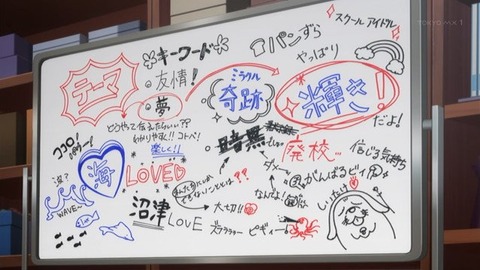 TOKYO MX 1
スクールアイドル
キーワード
パンずら
やっぱり
テーマ
・友情!
・夢
ミラクル
奇跡
輝き!
だよ!
どうやって伝えたらいい??
わかりやすく!!コトバ!
楽しく!!
ココロ!
海
LOVE
・暗黒
廃校…
信じる気持ち
ダメ
がんばるビィ
波?
WAVE~
沼津
LOVE
大切!!
なんだ!
しいたけ
ピギィー